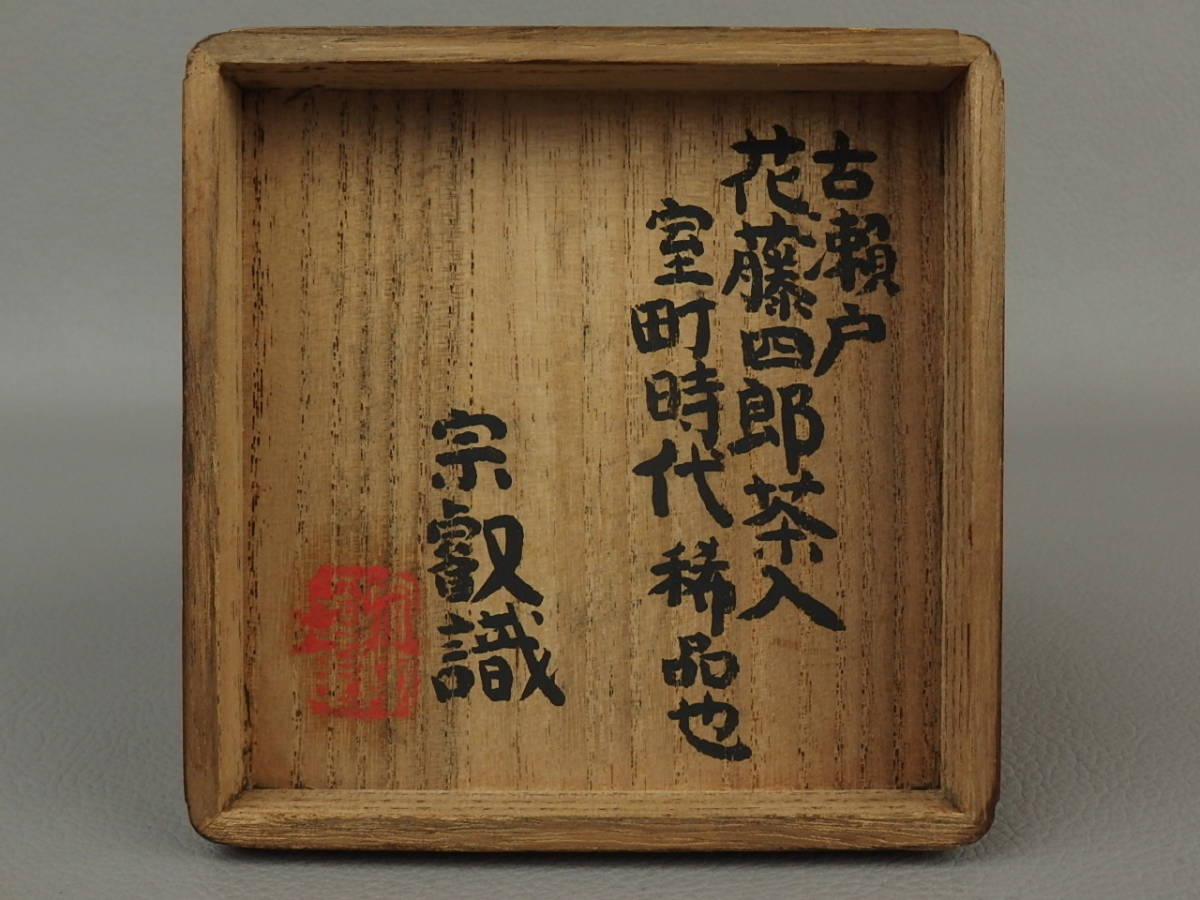 古瀬戸
花藤四郎茶入
室町時代 稀品也
宗叡識